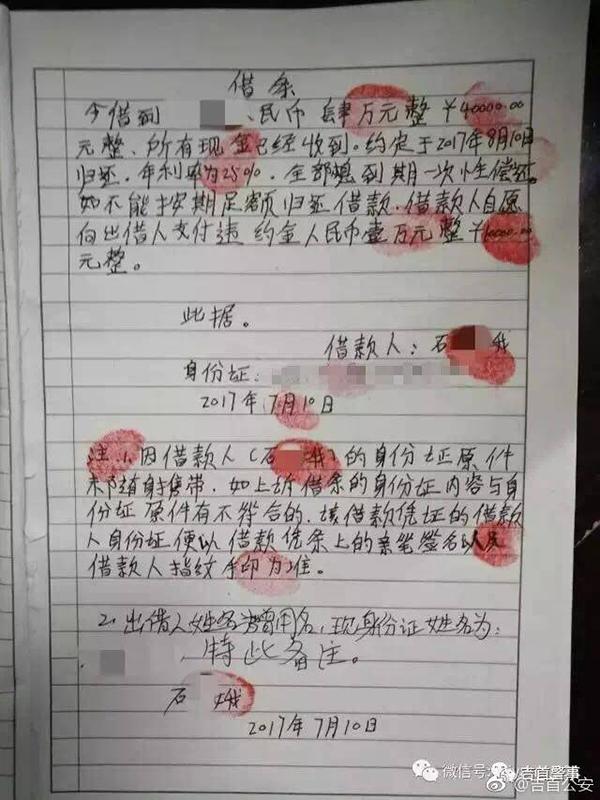 借条
今借到 民币肆万元整￥40000.00
元整、所有现金已经收到。约定于2017年8月10日
归还。年利率为25%，全部息到期一次性偿还。
如不能按期足额归还借款，借款人自愿
向出借人支付违约金人民币壹万元整￥10000.00
元整。
此据。
借款人：石 娥
身份证：
2017年7月10日
注：1、因借款人（石 娥）的身份证原件
未随身携带，如上诉借条的身份证内容与身
份证原件有不符合的，该借款凭证的借款
人身份证便以借款凭条上的亲笔签名以及
借款人指纹手印为准。
2、出借人姓名为曾用名，现身份证姓名为：
特此备注。
石 娥
2017年7月10日
微信号: 吉首警事
@吉首公安